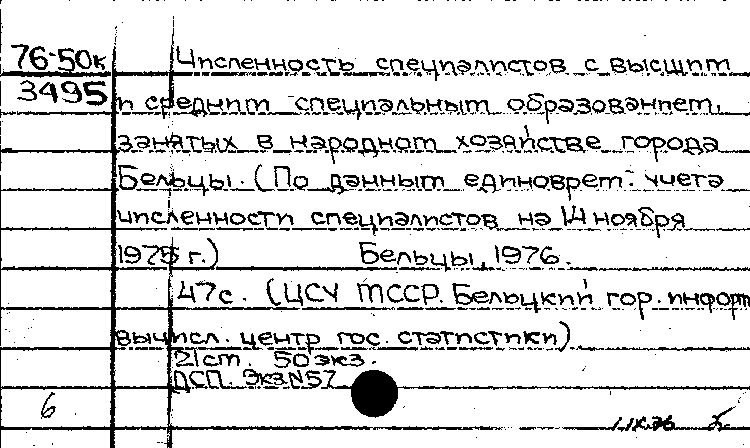 76-50к Численность специалистов с высшим
3495 и средним специальным образованием,
занятых в народном хозяйстве города
Бельцы. (По данным единоврем. учета
численности специалистов на 14 ноября
1975 г.) Бельцы, 1976.
47с. (ЦСУ МССР. Бельцкий гор. информ
вычисл. центр гос. статистики)
21см. 50 экз.
ДСП. Экз.N57
6 1.IX.76